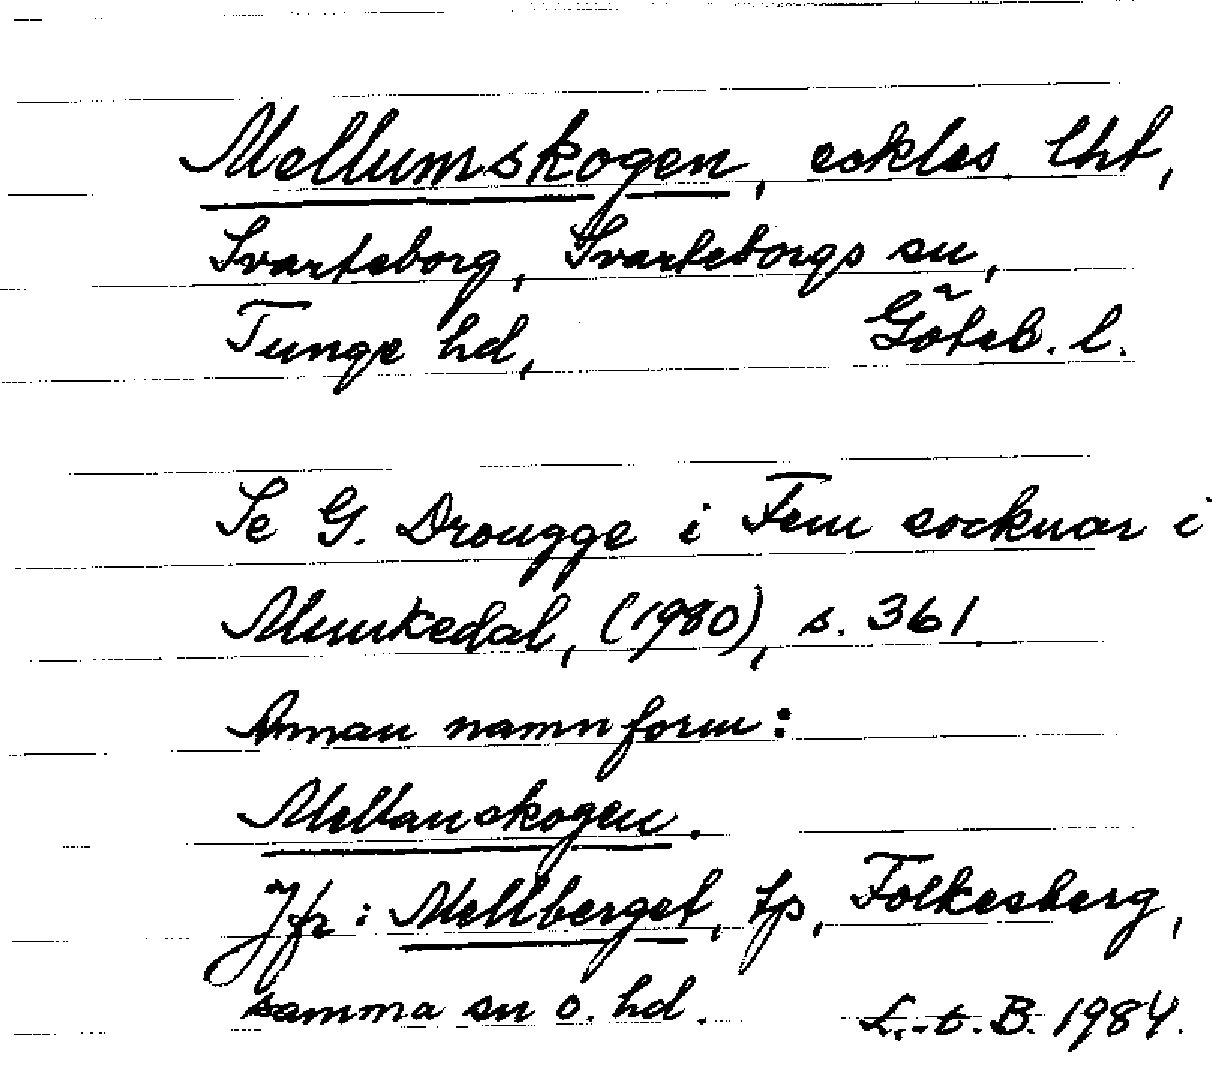 Mellumskogen, eckles. lht,
Svarteborg, Svarteborgs sn,
Tunge hd, Göteb. l.
Se G. Drougge i Fem socknar i
Munkedal, (1980), s. 361.
Annan namnform:
Mellanskogen.
Jfr: Mellberget, tp, Folkesberg,
samma sn o. hd. L.-t. B. 1984.